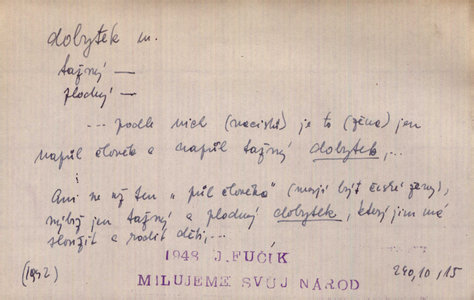 dobytek m.
tažný —
plodný —
... podle nich (nacistů) je to (žena) jen
napůl člověk a napůl tažný dobytek, ...
Ani ne už ten „půl člověka" (mají být české ženy),
nýbrž jen tažný a plodný dobytek, který jim má
sloužit a rodit děti, ...
1948 J. FUČÍK
MILUJEME SVŮJ NÁROD
(1942)
240, 10, 15